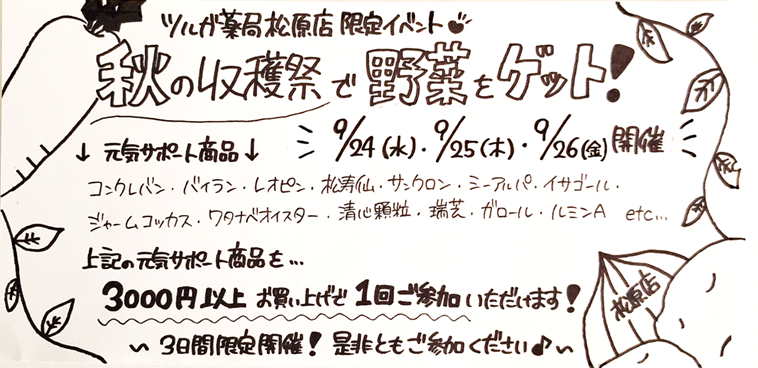 ツルガ薬局 松原店 限定イベント
秋の収穫祭で野菜をゲット!
↓ 元気サポート商品 ↓
9/24(水)・9/25(木)・9/26(金)開催
コンクレバン・バイラン・レオピン・松寿仙・サンクロン・ミーアルパ・イサゴール・
ジャームコッカス・ワタナベオイスター・清心顆粒・瑞芝・ガロール・ルミンA etc...
上記の元気サポート商品を...
3000円以上 お買い上げで 1回ご参加いただけます!
松原店
~ 3日間限定開催! 是非ともご参加ください♪ ~